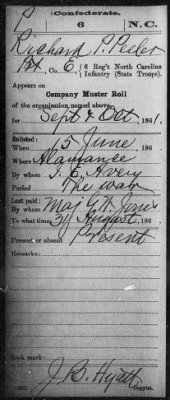 P Confederate.
6 N.C.
Richard P. Peeler
Pvt, Co. E, 6 Reg't North Carolina
Infantry (State Troops).
Appears on
Company Muster Roll
of the organization named above,
for Sept & Oct, 1861.
Enlisted:
When 5 June, 186 .
Where Alamance
By whom I. E. Avery
Period The war
Last paid:
By whom Maj G W Jones
To what time 31 August, 186 .
Present or absent Present
Remarks:
Book mark:
J. B. Hyatt
Copyist.